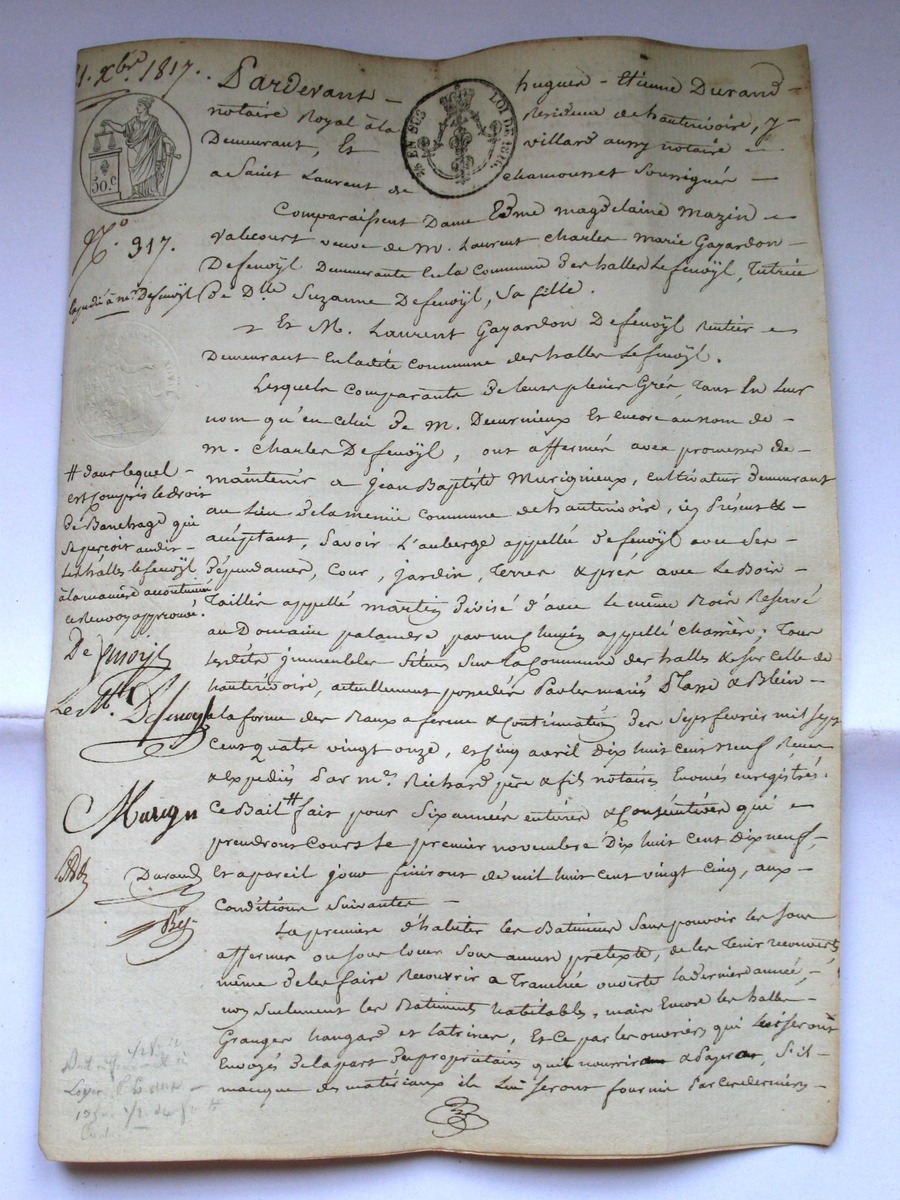 Xbre 1817.
Pardevant hugues - Etienne Durand
notaire Royal à la Résidence de hauterivoire, y
Demeurant, Et villard aussy notaire
a Saint Laurent de chamousset Soussignés
50 c
EN SUS
LOI DE 1816
No. 317.
Comparaissent Dame Edme magdelaine mazin
valicourt veuve de M. Laurent Charles Marie Gayardon
Defenoÿl Demeurante En la Commune des halles Lefenoÿl, Tutrice
De Dlle Suzanne Defenoÿl, Sa fille.
Expédié à mr. Defenoÿl
Et M. Laurent Gayardon Defenoÿl Rentier
Demeurant En ladite Commune des halles Lefenoÿl.
Lesquels Comparants de leurs pleins Grés, Tant En leur
nom qu'en Celui de M. Et encore au nom de
M. Charles Defenoÿl, ont affermé avec promesse de
maintenir a jean Baptiste Murigneux, cultivateur demeurant
au Lieu De la menüe Commune de hauterivoire, icy Présent &
acceptant, Savoir L'auberge appellée Defenoÿl avec Ses
Dépendances, Cour, jardin, Terres & prés avec Le Bois
Taillis appellé martin divisé d'avec Le même Bois Reservé
au Domaine par un chemin appellé charrière; Tous
Lesdits immeubles Situés Sur la Commune des halles & Sur Celle de
hauterivoire, actuellement possedés Par les mariés & Blein
a la forme des Baux a ferme & Continuation des Sept février mil Sept
Cent quatre vingt onze, et Cinq avril Dix huit cent neuf Recus
& expediés Par mes Richard père & fils notaires Enregistrés.
Ce Bail # fait pour Six années entières & Consécutives qui
prendront Cours Le premier novembre Dix huit Cent Dix neuf,
Et a pareil jour finiront de mil huit cent vingt cinq, aux
Conditions Suivantes
# dans lequel
est Compris le droit
de Banchage qui
Se perçoit audit
Les halles Le fenoÿl
à la manière accoutumée
ce Renvoy approuvé.
De fenoyl
Defenoyl
Murign
Durand
La première d'habiter les Batiments Sans pouvoir les Sous
affermer ou Sous louer Sous aucun pretexte, de les Tenir recouverts
même de les faire Recouvrir a Tranchée ouverte la derniere année,
non Seulement les Batiments habitables, mais Encore les halles
Granges hangards et latrines, Et Ce par les ouvriers qui lui Seront
Envoyés De la part du propriétaire qu'il nourrira & payera, S'il
manque des matériaux ils Lui Seront fournis Par Ces derniers